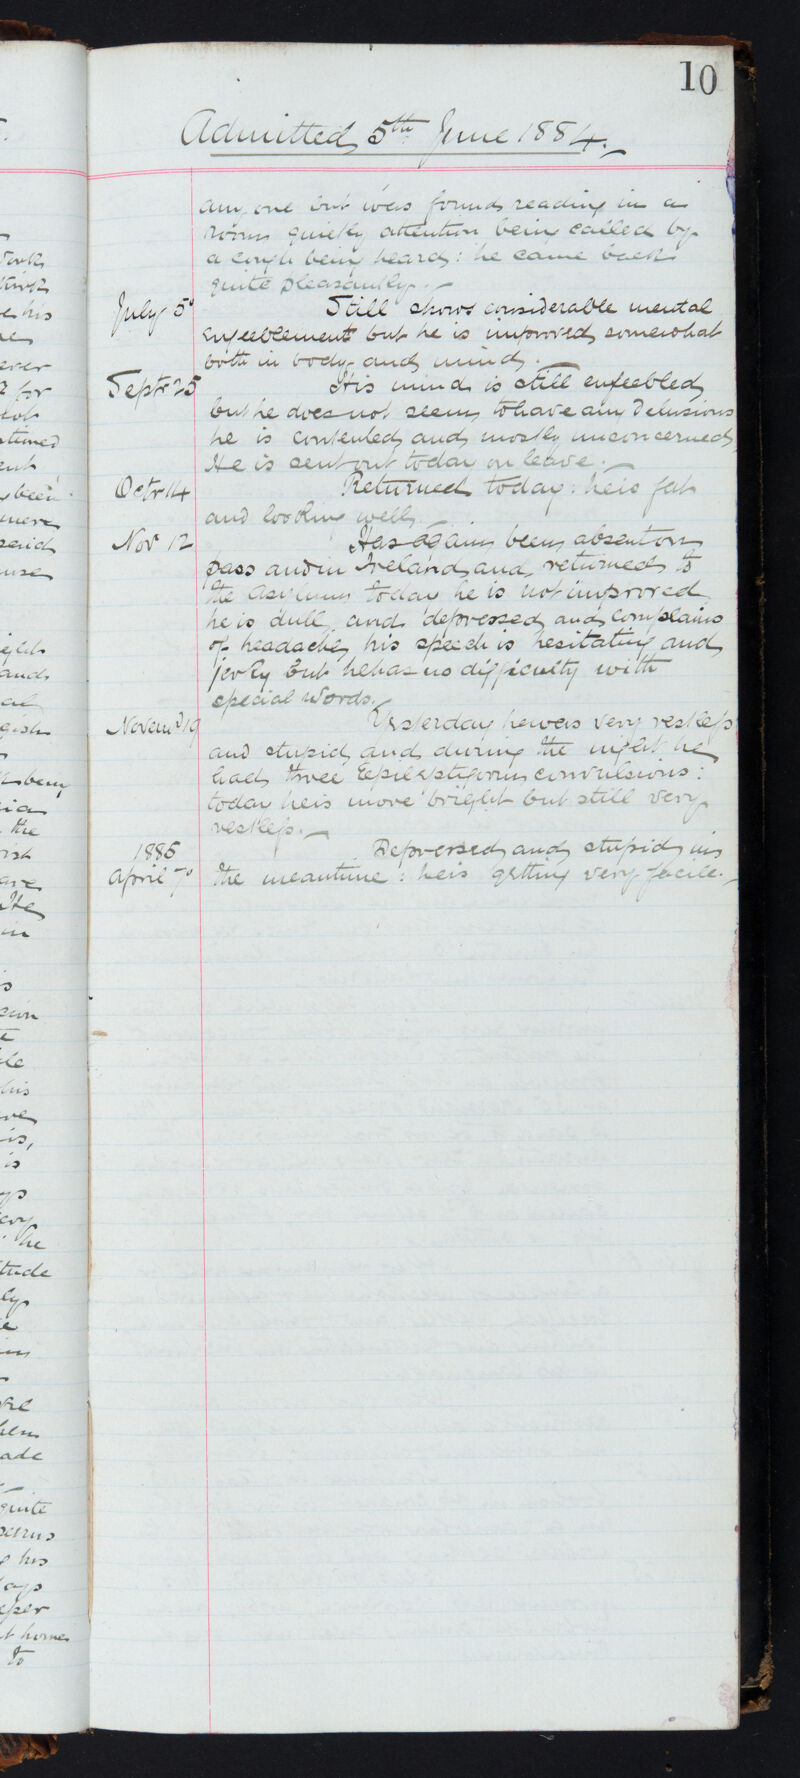 10
Admitted 5th June 1884.
any one but was found reading in a
room quietly attention being called by
a cough being heard: he came back
quite pleasantly.
July 5 Still shows considerable mental
enfeeblement but he is improved somewhat
both in body and mind.
Septr 25 His mind is still enfeebled
but he does not seem to have any delusions
he is contented and mostly unconcerned
He is sent out today on leave.
Octr 14 Returned today: he is fat
and looking well.
Nov 12 Has again been absent on
pass and in Ireland and returned to
the asylum today he is not improved
he is dull and depressed and complains
of headache, his speech is hesitating and
jerky but he has no difficulty with
special words.
Novem 19 Yesterday he was very restless
and stupid and during the night he
had three Epileptiform convulsions:
today he is more bright but still very
restless.
1885 Depressed and stupid in
April 7 the meantime: he is getting very facile.